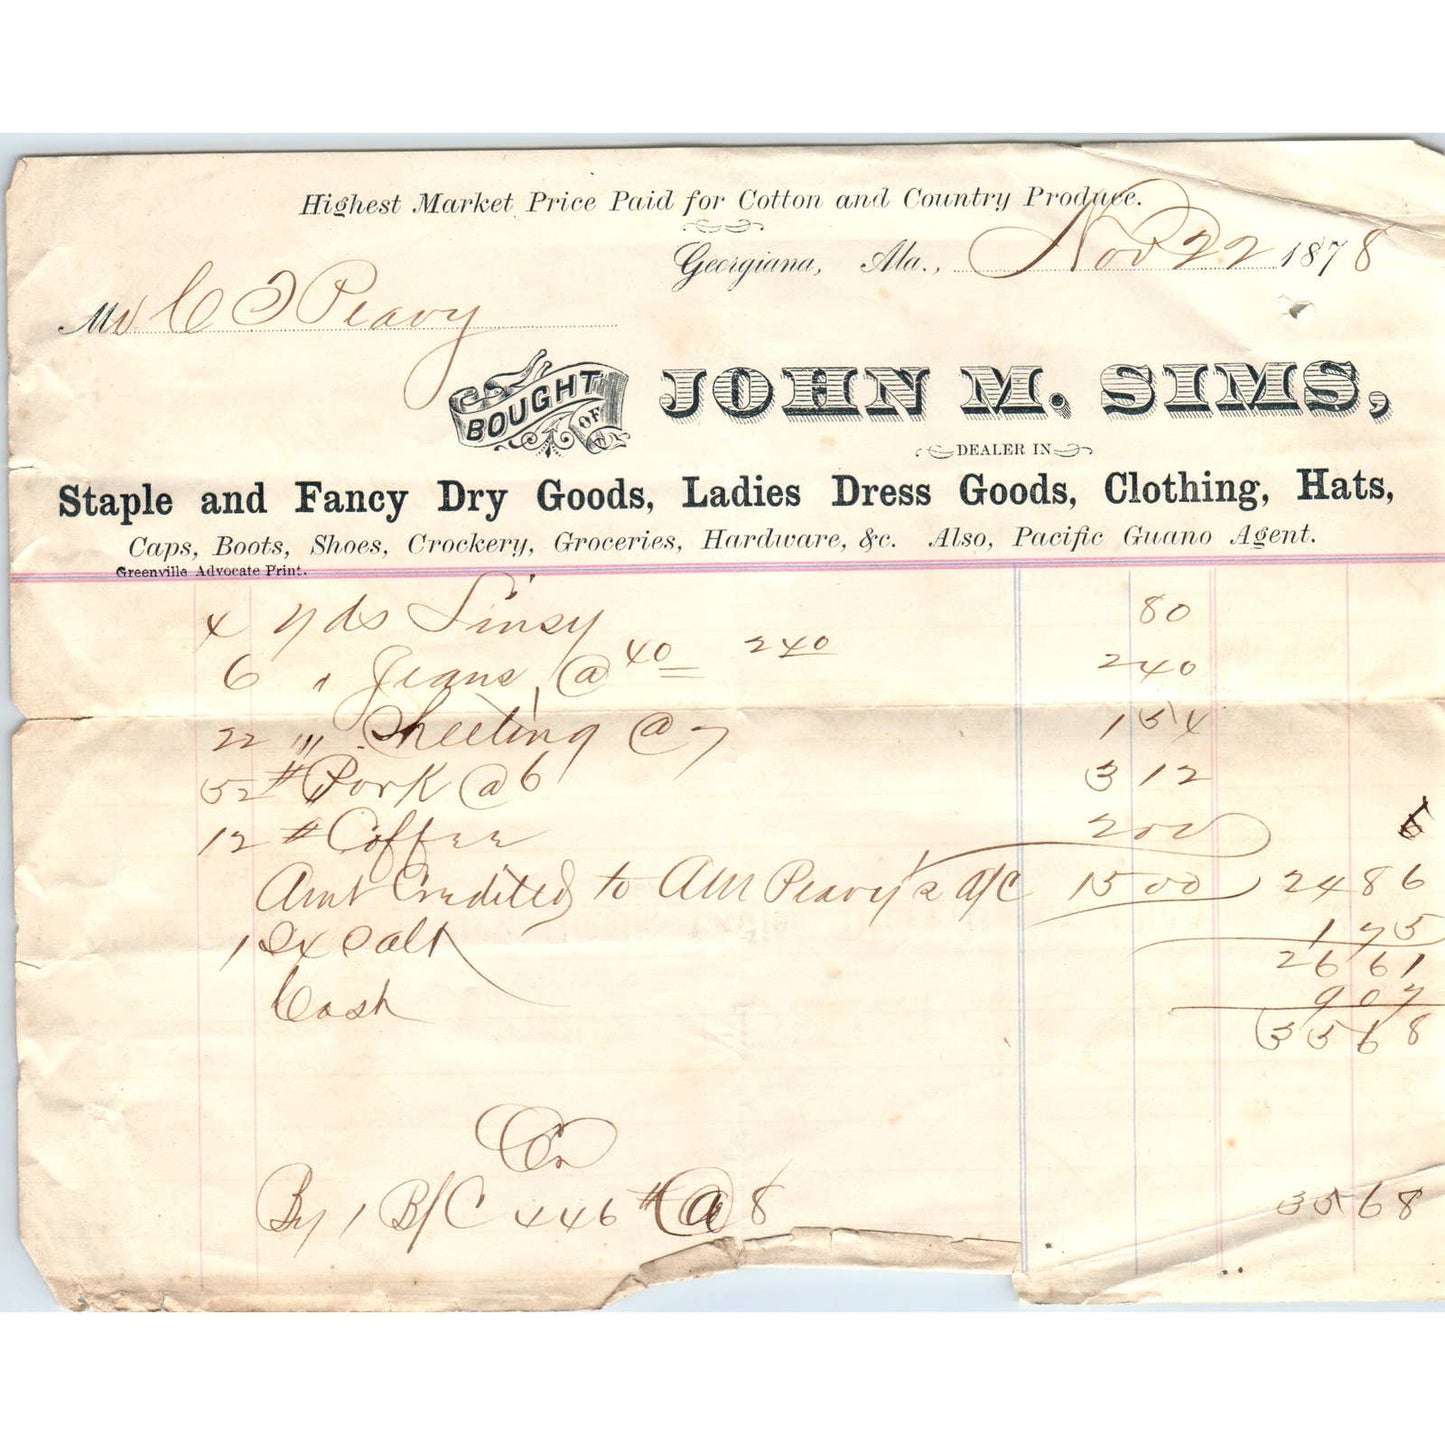 Highest Market Price Paid for Cotton and Country Produce.
Georgiana, Ala., Nov 22 1878
Mr C T Peavy
BOUGHT OF JOHN M. SIMS,
DEALER IN
Staple and Fancy Dry Goods, Ladies Dress Goods, Clothing, Hats,
Caps, Boots, Shoes, Crockery, Groceries, Hardware, &c. Also, Pacific Guano Agent.
Greenville Advocate Print.
4 yds Linsy 80
6 " Jeans @ 40 240 240
22 " Sheeting @ 7 154
52 # Pork @ 6 312
12 # Coffee 200
Amt Credited to Peavy's a/C 1500 2486
1 Sx Salt 175
2661
Cash 907
3568
Cr
By 1 B/C 446 # @ 8 3568